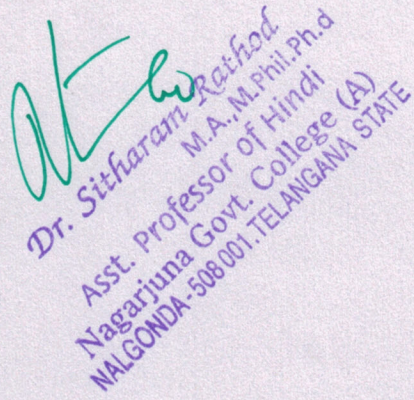 Dr. Sitharam Rathod
M.A.,M.Phil.Ph.d
Asst. Professor of Hindi
Nagarjuna Govt. College (A)
NALGONDA-508001.TELANGANA STATE